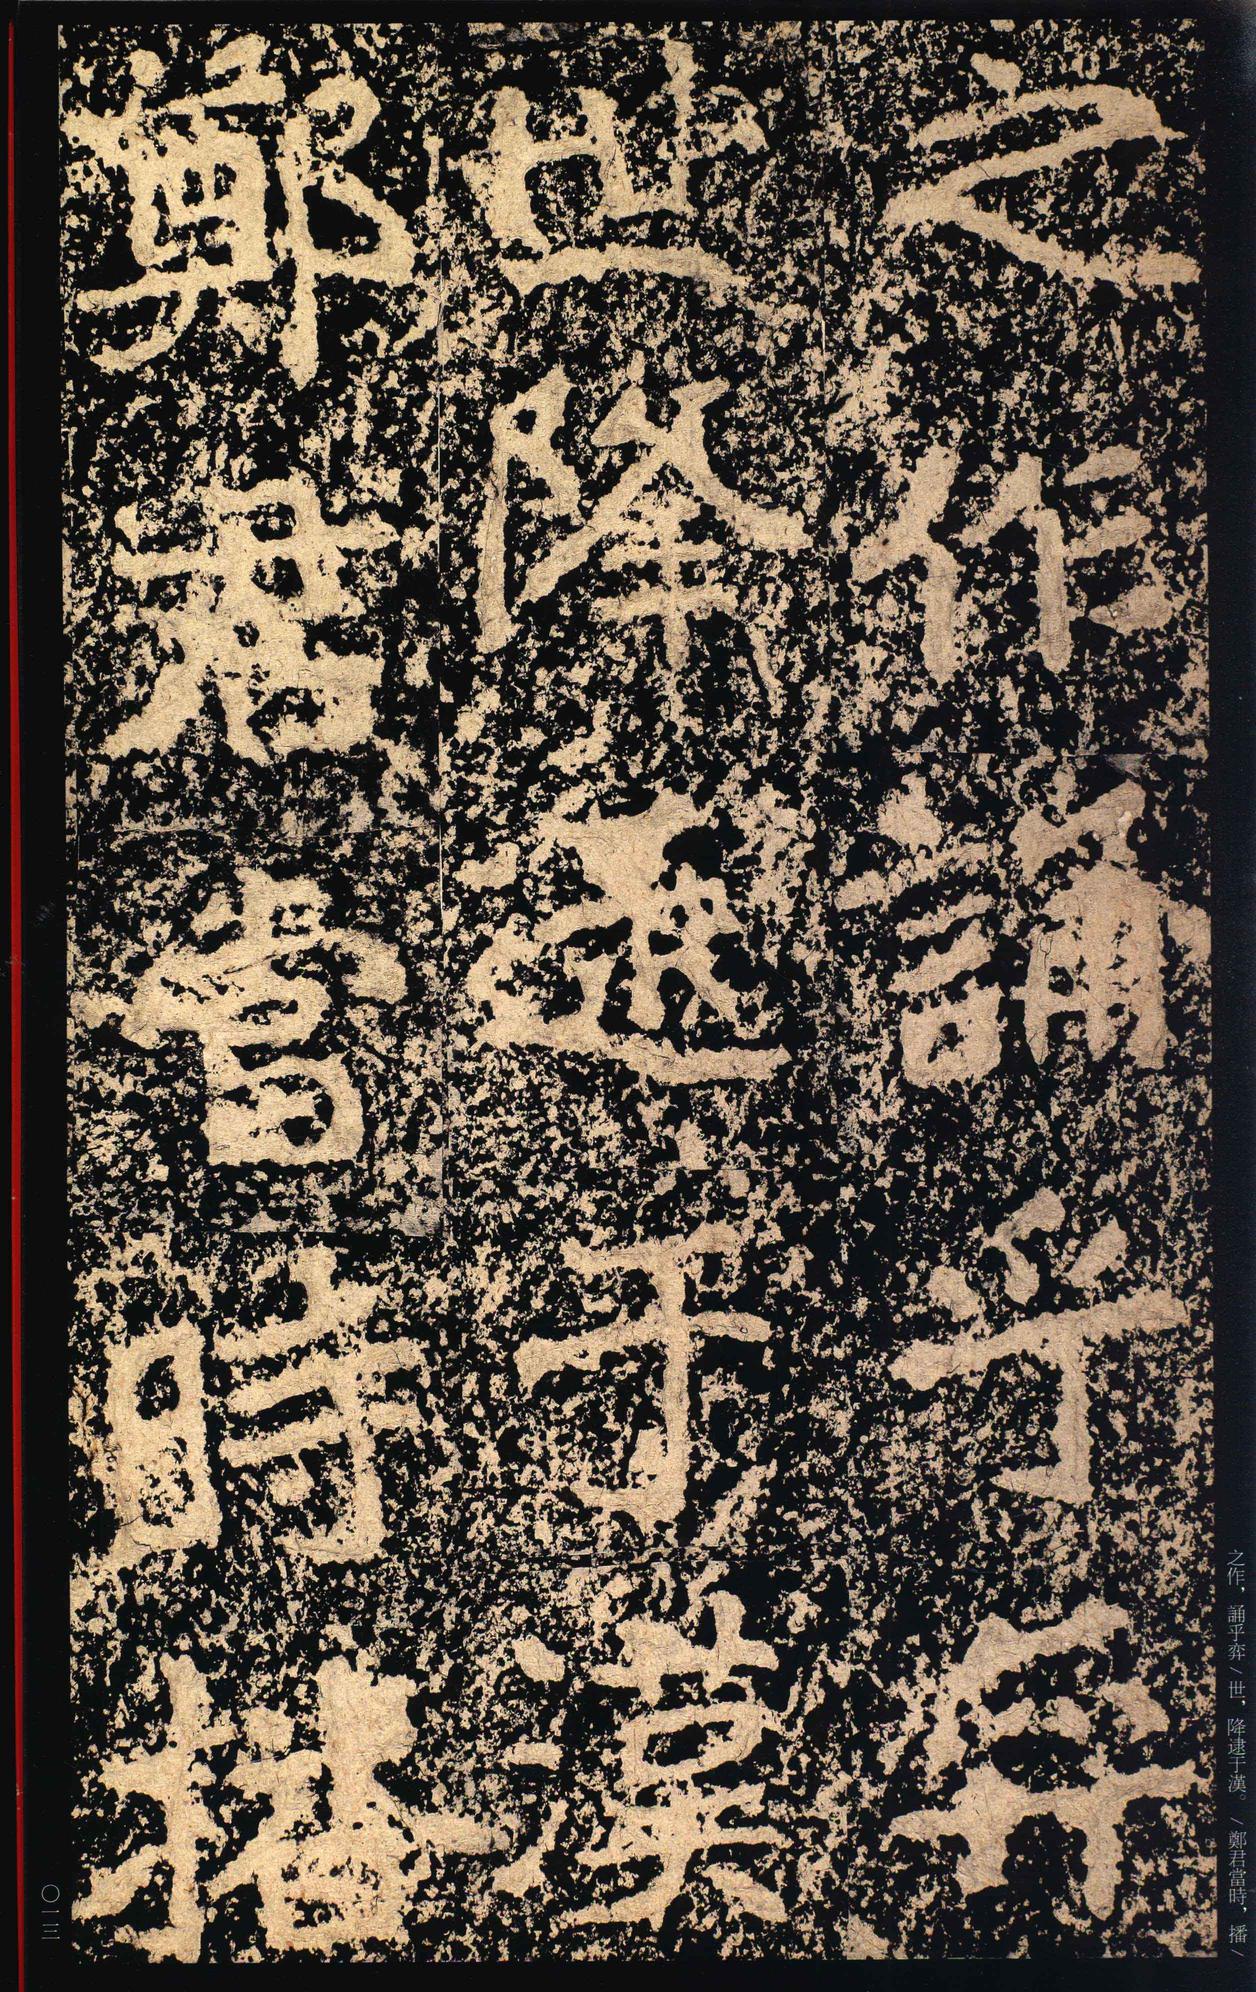 之作誦乎弈
世降逮于漢
鄭君當時播
之作，誦乎弈／世，降逮于漢。／鄭君當時，播／
〇一三